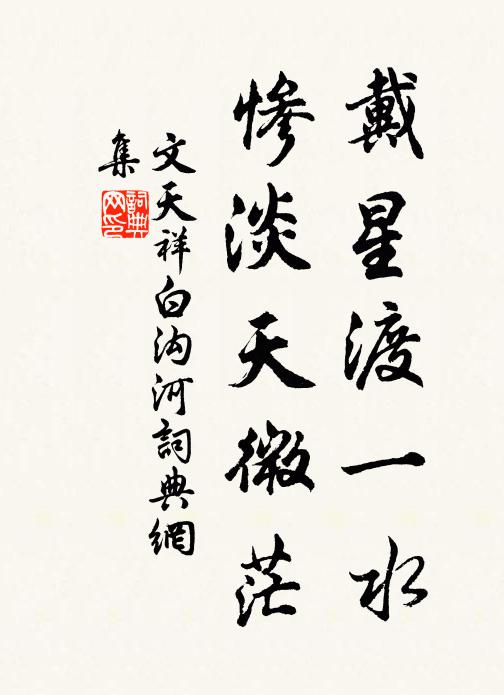 戴星渡一水
惨淡天微茫
文天祥白沟河詞典網
集
詞典
网印